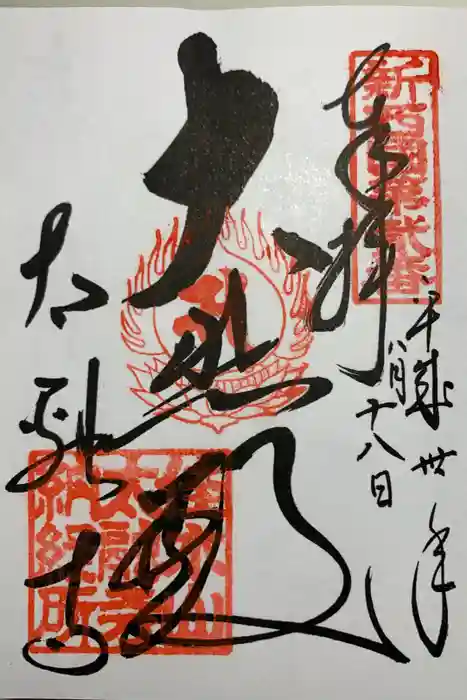 新西国第弐番
奉拝
平成丗年
八月十八日
大悲殿
太融寺
佳木山
太融寺
納経所